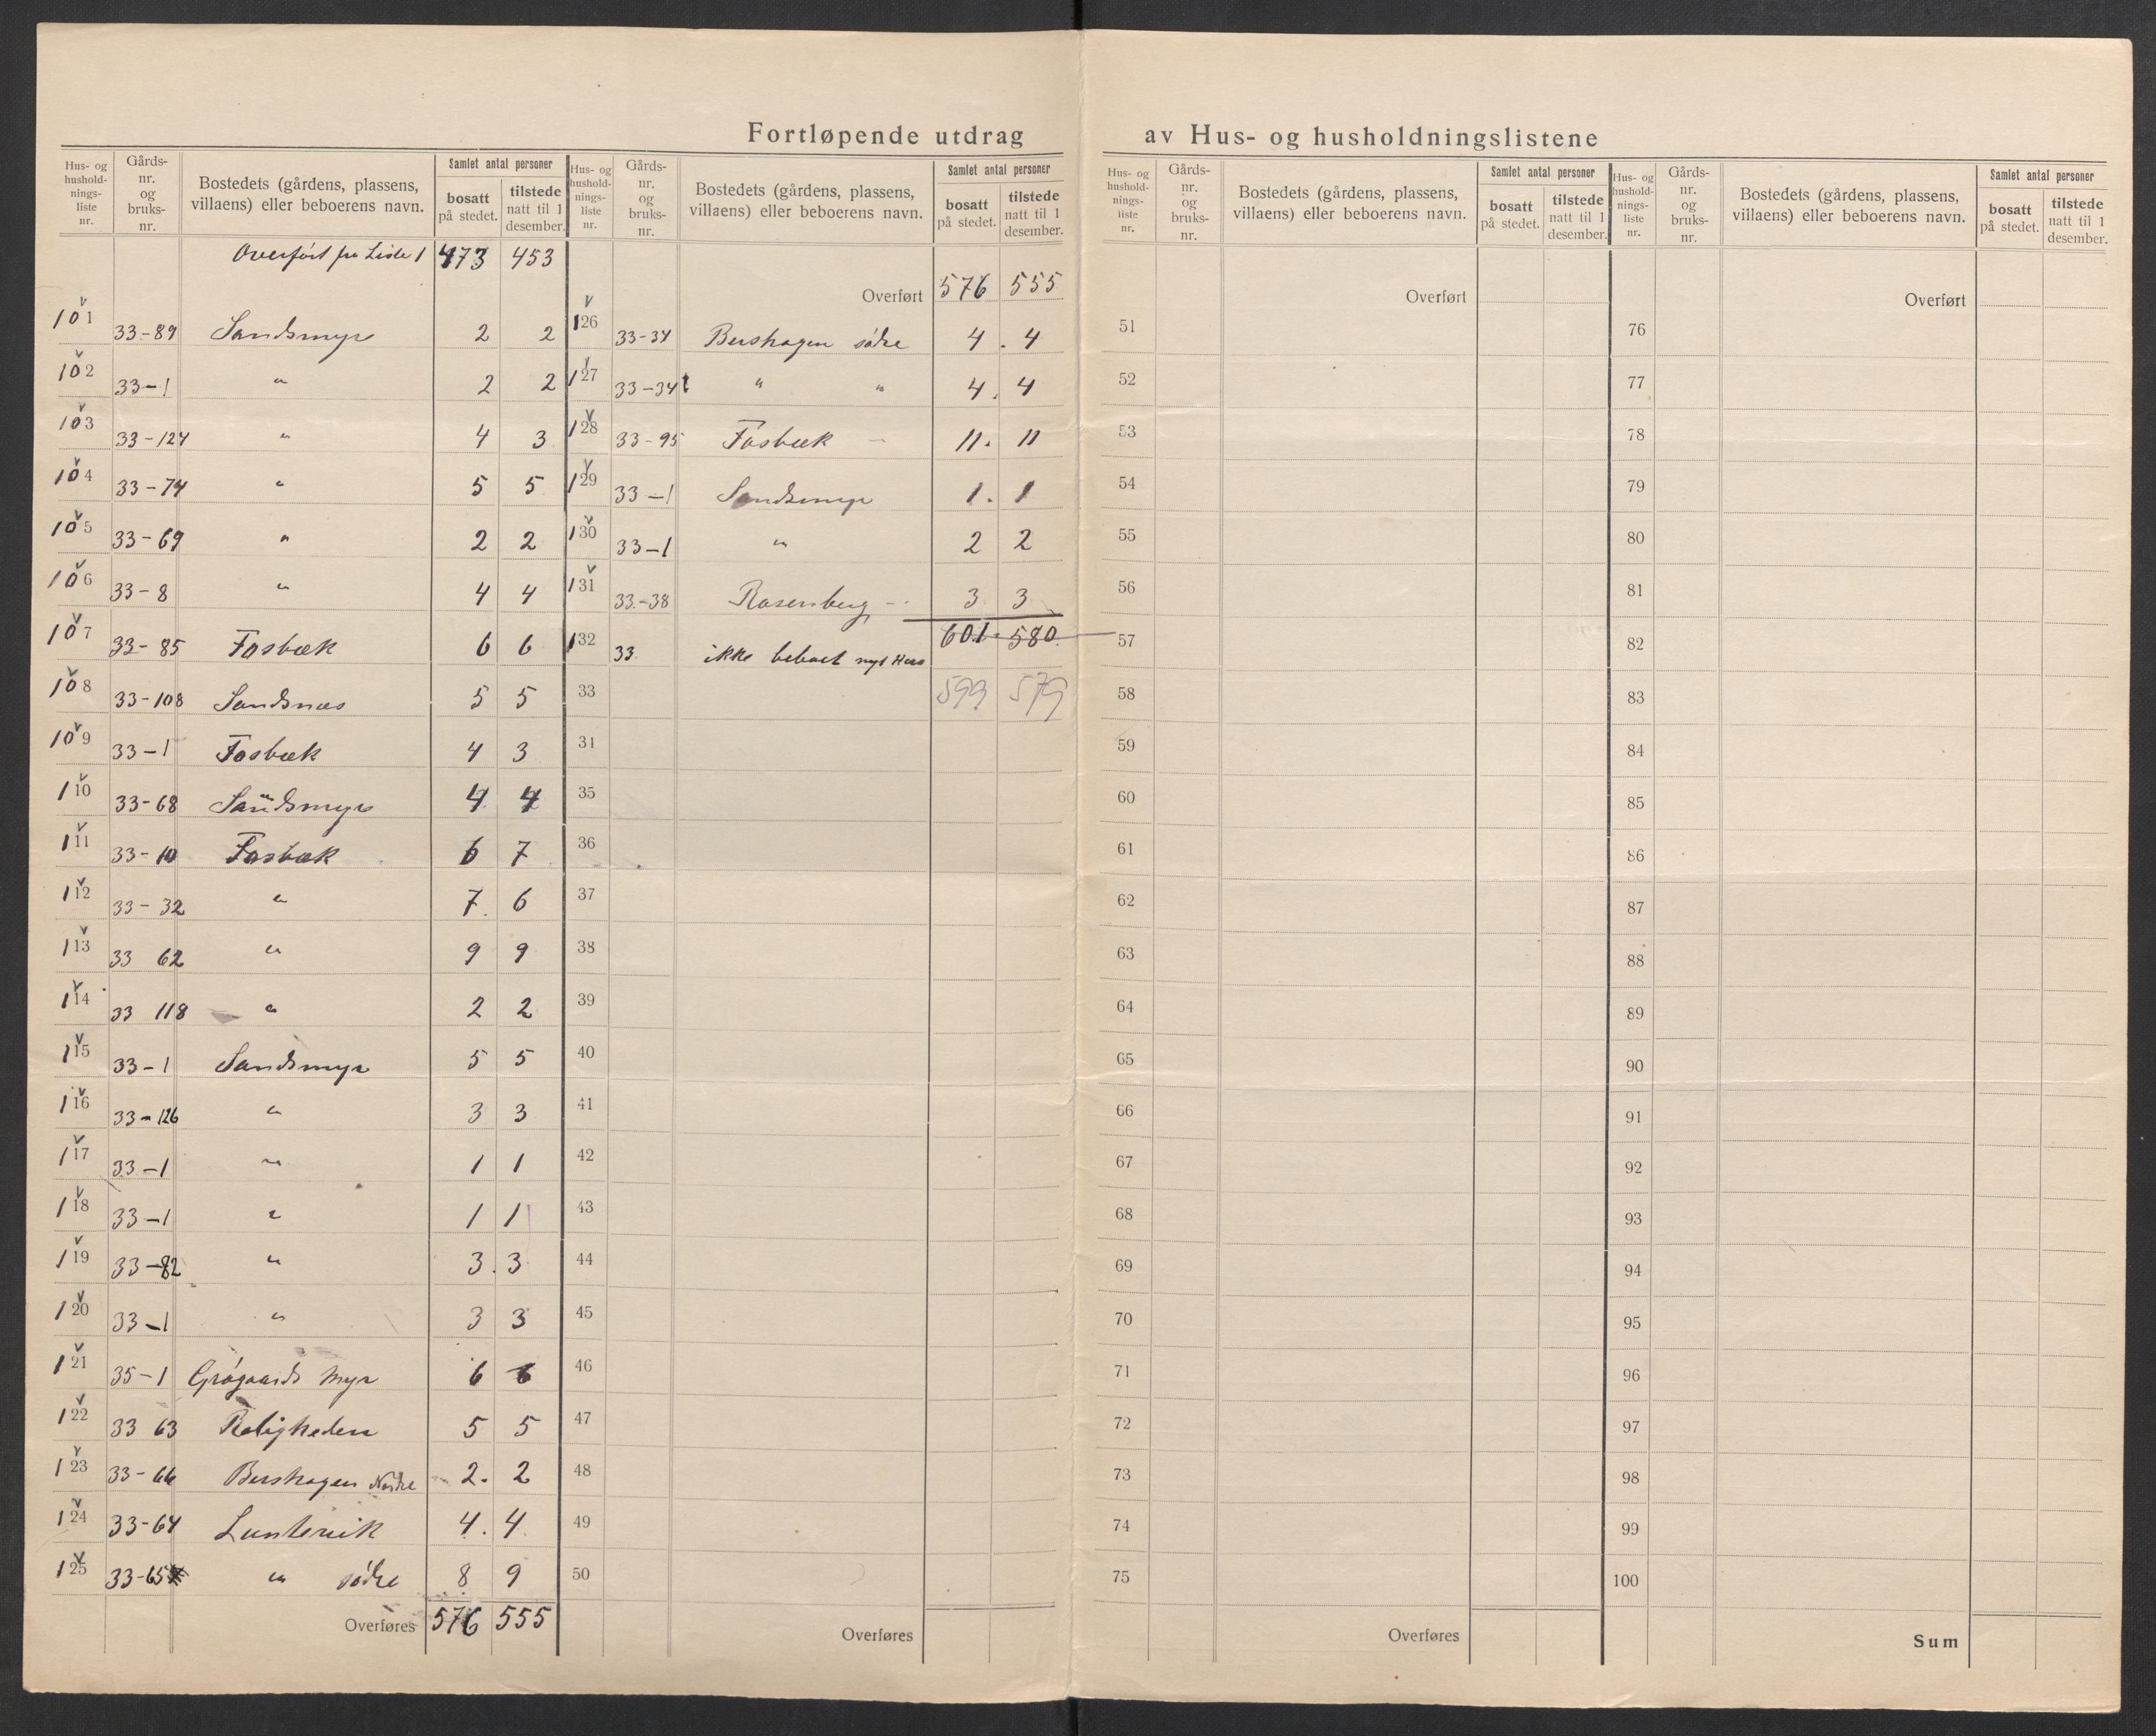 Fortløpende utdrag av Hus- og husholdningslistene
Hus- og hushold-nings-liste nr. | Gårds-nr. og bruks-nr. | Bostedets (gårdens, plassens, villaens) eller beboerens navn. | Samlet antal personer | bosatt på stedet. | tilstede natt til 1 desember.
Overført fra Liste 1 473 453
101 33-89 Sandsmyr 2 2
102 33-1 " 2 2
103 33-124 " 4 3
104 33-74 " 5 5
105 33-69 " 2 2
106 33-8 " 4 4
107 33-85 Fosbæk 6 6
108 33-108 Sandsnæs 5 5
109 33-1 Fosbæk 4 3
110 33-68 Sandsmyr 4 4
111 33-10 Fosbæk 6 7
112 33-32 " 7. 6
113 33 62 " 9 9
114 33 118 " 2 2
115 33-1 Sandsmyr 5 5
116 33-126 " 3 3
117 33-1 " 1 1
118 33-1 " 1 1
119 33-82 " 3. 3
120 33-1 " 3 3
121 35-1 Grøgaards Myr 6 6
122 33 63 Roligheden 5 5
123 33-66 Bershagen Nordre 2. 2
124 33-64 Lunlevik 4. 4
125 33-65 " södre 8 9
Overføres 576 555
Hus- og hushold-nings-liste nr. | Gårds-nr. og bruks-nr. | Bostedets (gårdens, plassens, villaens) eller beboerens navn. | Samlet antal personer | bosatt på stedet. | tilstede natt til 1 desember.
Overført 576 555
126 33-34 Bershagen södre 4. 4
127 33-34 " " 4. 4
128 33-95 Fosbæk 11. 11
129 33-1 Sandsmyr 1. 1
130 33-1 " 2 2
131 33-38 Rosenberg 3 3
601. 580.
132 33 ikke beboet nyt Hus
33 599 579
34
35
36
37
38
39
40
41
42
43
44
45
46
47
48
49
50
Overføres
Hus- og hushold-nings-liste nr. | Gårds-nr. og bruks-nr. | Bostedets (gårdens, plassens, villaens) eller beboerens navn. | Samlet antal personer | bosatt på stedet. | tilstede natt til 1 desember.
Overført
51
52
53
54
55
56
57
58
59
60
61
62
63
64
65
66
67
68
69
70
71
72
73
74
75
Overføres
Hus- og hushold-nings-liste nr. | Gårds-nr. og bruks-nr. | Bostedets (gårdens, plassens, villaens) eller beboerens navn. | Samlet antal personer | bosatt på stedet. | tilstede natt til 1 desember.
Overført
76
77
78
79
80
81
82
83
84
85
86
87
88
89
90
91
92
93
94
95
96
97
98
99
100
Sum